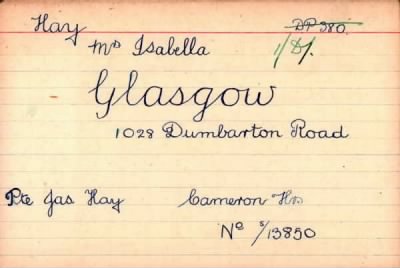 Hay DP 980.
Mrs Isabella 1/D/.
Glasgow
1028 Dumbarton Road
Pte Jas Hay Cameron Hrs
No s/13850